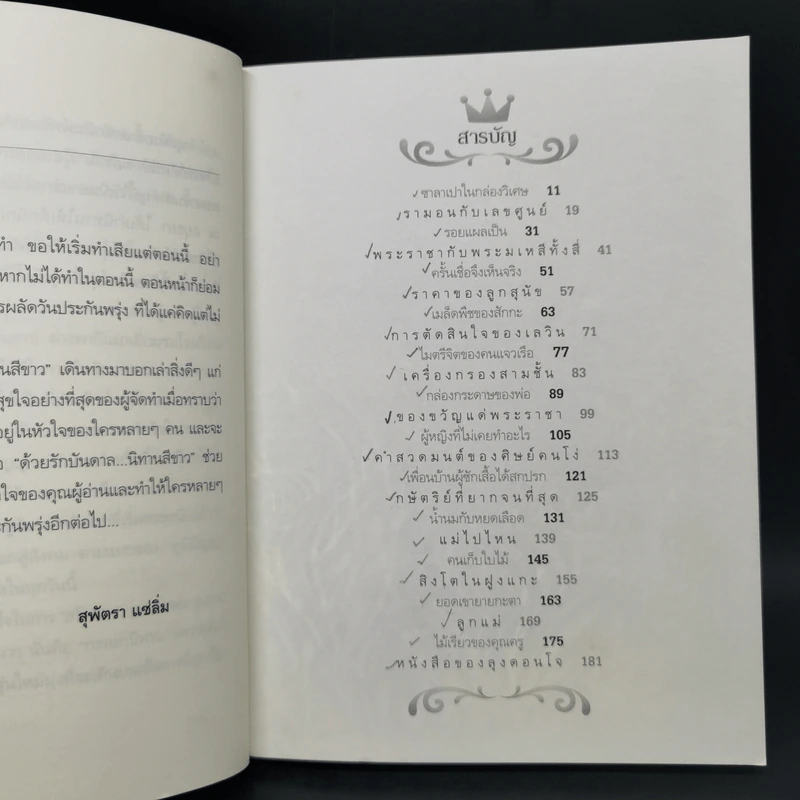 ทำ ขอให้เริ่มทำเสียแต่ตอนนี้ อย่า
หากไม่ได้ทำในตอนนี้ ตอนหน้าก็ย่อม
รผลัดวันประกันพรุ่ง ที่ได้แค่คิดแต่ไม่
านสีขาว” เดินทางมาบอกเล่าสิ่งดีๆ แก่
สุขใจอย่างที่สุดของผู้จัดทำเมื่อทราบว่า
อยู่ในหัวใจของใครหลายๆ คน และจะ
อ “ด้วยรักบันดาล...นิทานสีขาว” ช่วย
ใจของคุณผู้อ่านและทำให้ใครหลายๆ
ะกันพรุ่งอีกต่อไป...
สุพัตรา แซ่ลิ่ม
สารบัญ
ซาลาเปาในกล่องวิเศษ 11
รามอนกับเลขศูนย์ 19
รอยแผลเป็น 31
พระราชากับพระมเหสีทั้งสี่ 41
ครั้นเชื่อจึงเห็นจริง 51
ราคาของลูกสุนัข 57
เมล็ดพืชของสักกะ 63
การตัดสินใจของเลวิน 71
ไมตรีจิตของคนแจวเรือ 77
เครื่องกรองสามชั้น 83
กล่องกระดาษของพ่อ 89
ของขวัญแด่พระราชา 99
ผู้หญิงที่ไม่เคยทำอะไร 105
คำสวดมนต์ของศิษย์คนโง่ 113
เพื่อนบ้านผู้ซักเสื้อได้สกปรก 121
กษัตริย์ที่ยากจนที่สุด 125
น้ำนมกับหยดเลือด 131
แม่ไปไหน 139
คนเก็บใบไม้ 145
สิงโตในฝูงแกะ 155
ยอดเขายายกะตา 163
ลูกแม่ 169
ไม้เรียวของคุณครู 175
หนังสือของลุงดอนโจ 181